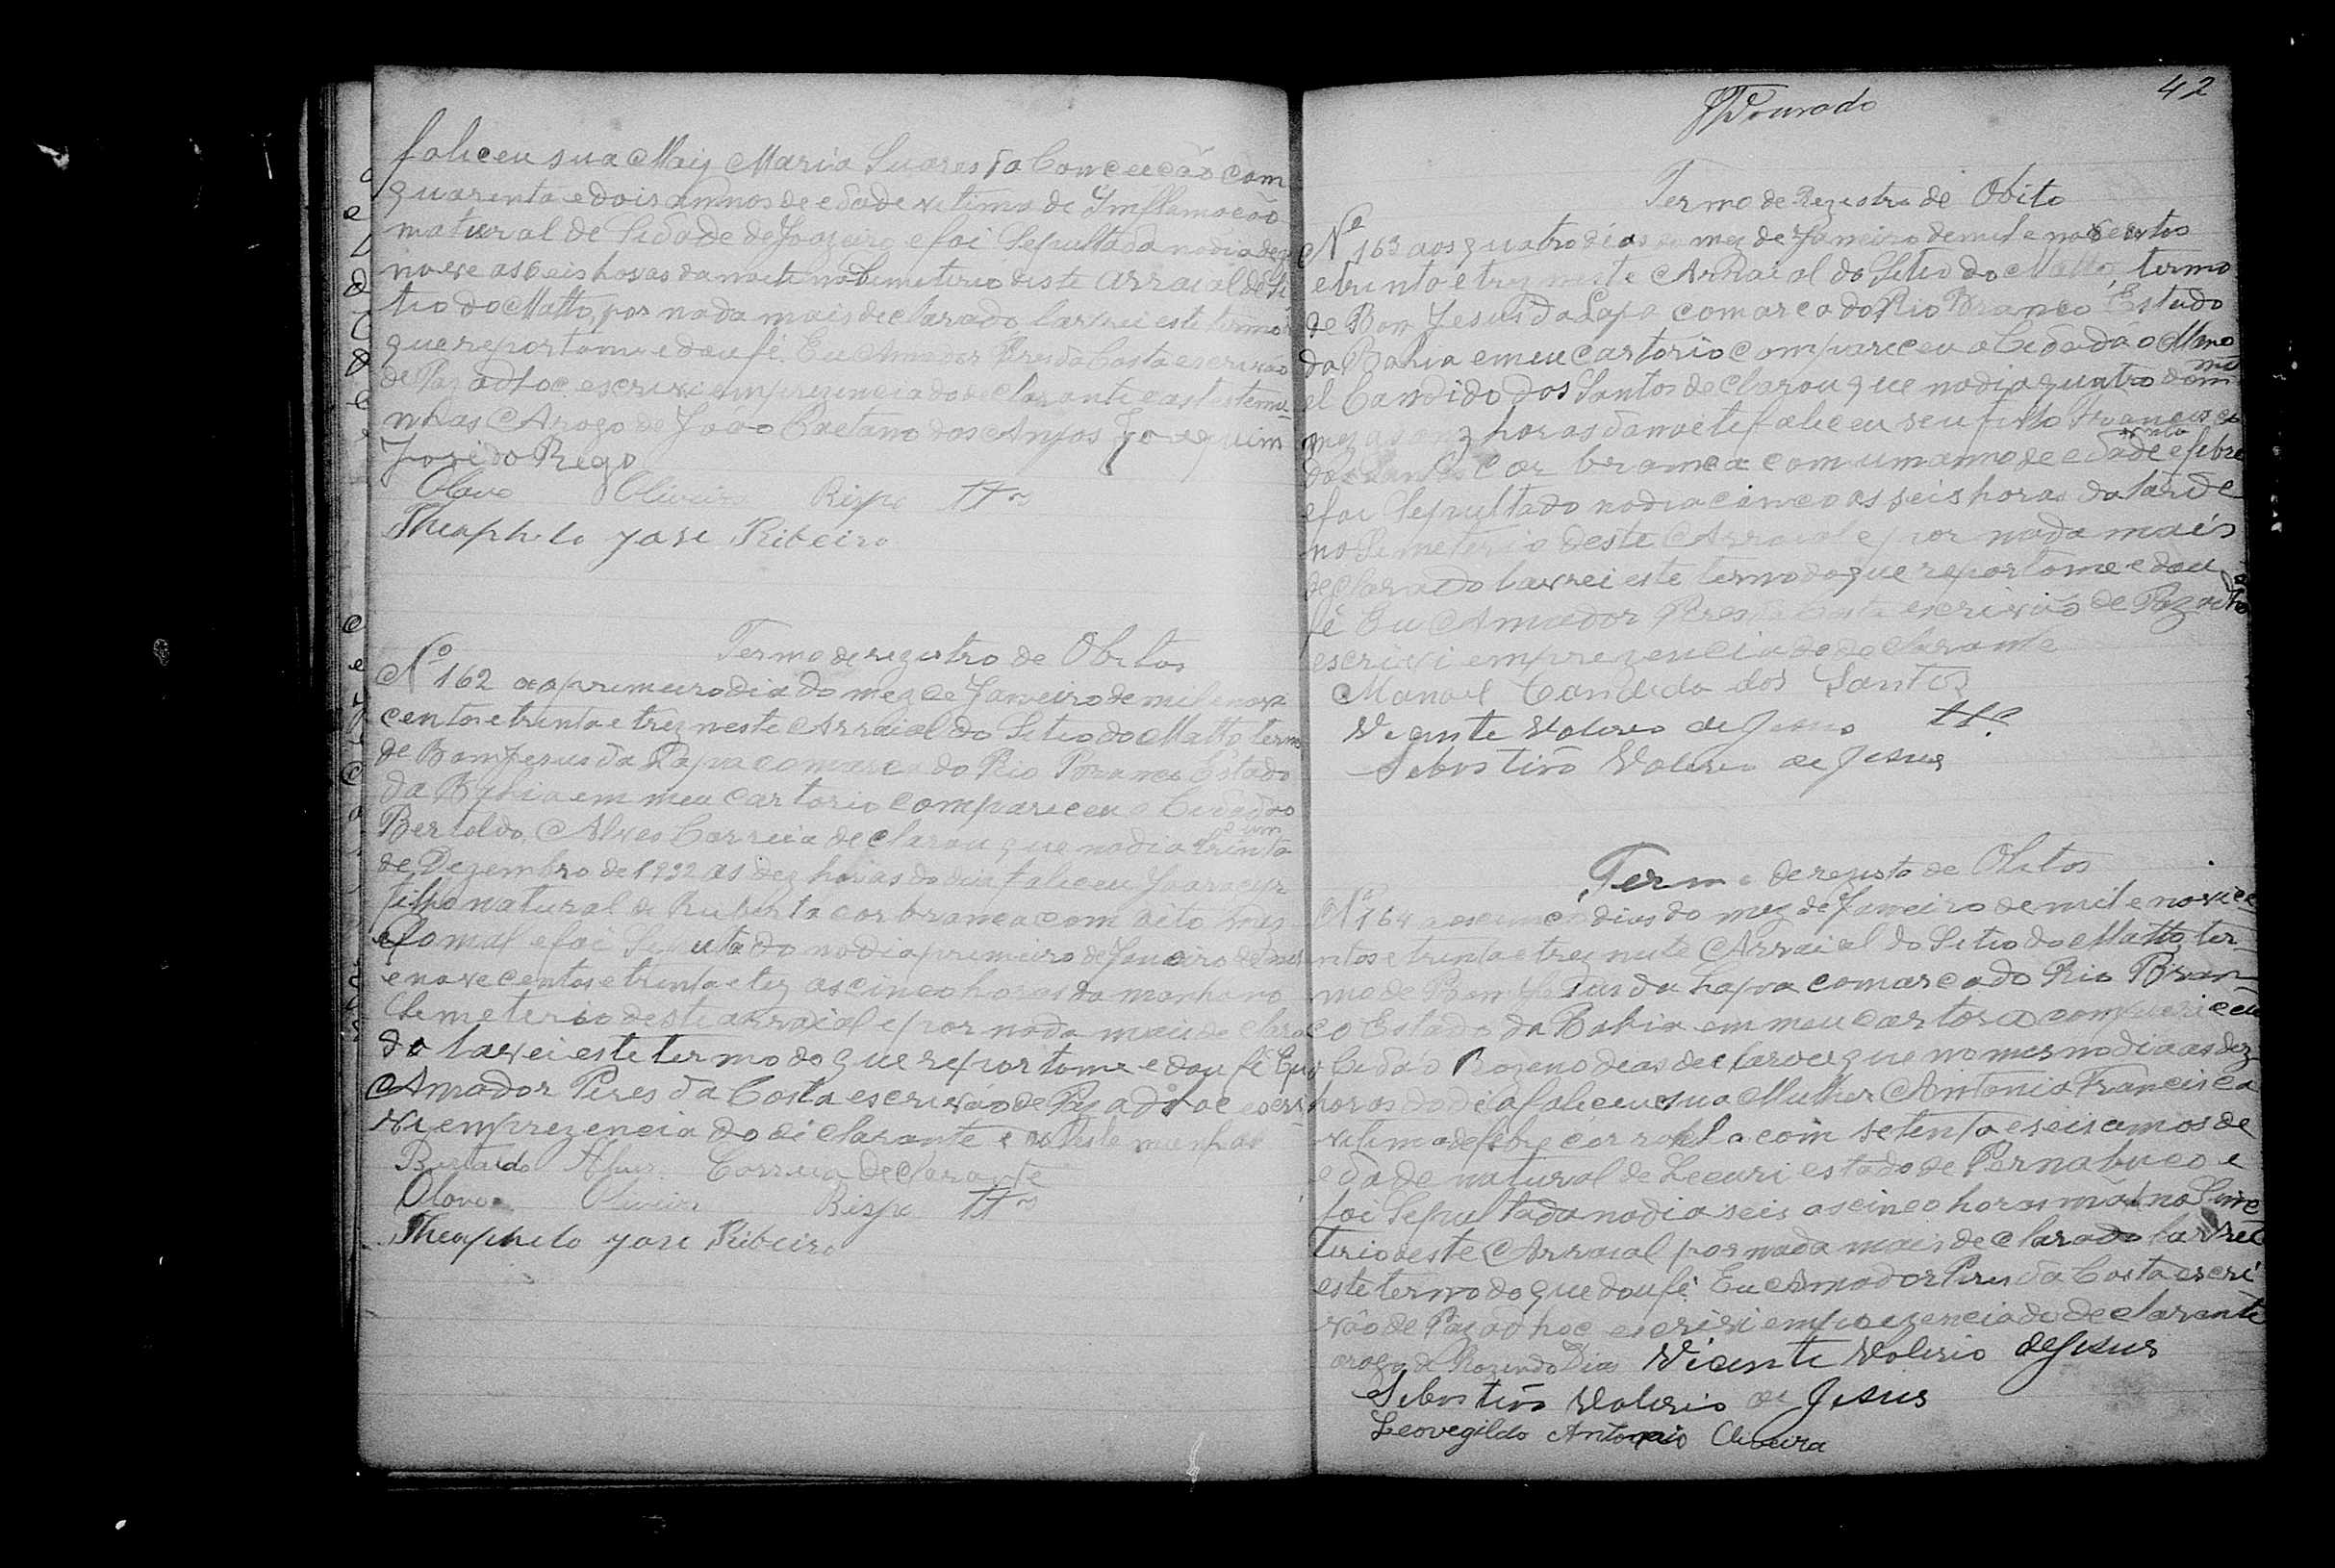 faliceu sua Maiz Maria Suares da Conceição com
quarenta e dois annos de edade vitima de Imflamação
natural de Sidade de Joazeiro e foi Sepultada no dia dez
nove as seis horas da noite no Cimiterio deste arraial do Si
tio do Matto, por nada mais declarado larvei este termo
que reportome e dou fé, Eu Amador Pires da Costa escrivão
de Paz adhoc escrevi em prezencia do declarante e as testemu
nhas Arogo de João Caetano dos Anjos Joaquim
José do Rego
Olavo Oliveira Bispo ttas
Theophilo jose Ribeiro
Termo de registro de Obitos
Nº 162 ao primeiro dia do mez de Janeiro de mil e nove
centos e trinta e trez neste Arraial do Sitio do Matto, termo
de Bom Jesus da Lapa comarca do Rio Branco Estado
da Bahia em meu cartorio compareceu o Cidadão
Bertoldo Alves Correia declarou que no dia trinta
e um
de Dezembro de 1932 as dez horas do dia faliceu
filho natural de Ruberta cor branca com oito
do mal e foi Sepultado no dia primeiro de Janeiro de mil
e novecentos e trinta e trez as cinco horas da manhã no
Cimeterio deste arraial e por nada mais declara
do larvei este termo do que reportome e dou fé Eu
Amador Pires da Costa escrivão de Paz adhoc escri
vi em prezencia do diclarante e as testemunhas
Bertoldo Alves Correia declarante
Olavo Oliveira Bispo ttas
Theophilo jose Ribeiro
42
Dourado
Termo de Registro de Obito
Nº 163 aos quatro dias do mez de Janeiro de mil e novecentos
e trinta e trez neste Arraial do Sitio do Matto, termo
de Bom Jesus da Lapa comarca do Rio Branco Estado
da Bahia em meu cartorio compareceu o Cidadão Mano
el Candido dos Santos declarou que no dia quatro do m
mez as horas da noite faliceu seu filho Francisco
dos Santos cor branca com um anno de edade e febre
e foi Sepultado no dia cinco as seis horas da tarde
no Simeterio deste Arraial e por nada mais
declarado larvrei este termo do que reportome e dou
fé Eu Amador Pires da Costa escrivão de Paz adhoc
escrivi em prezencia do declarante
Manoel Candido dos Santos
Vicente Valerio de Jesus tta
Sebastião Valerio de Jesus
Termo de registo de Obitos
Nº 164 aos cinco dias do mez de Janeiro de mil e novece
ntos e trinta e trez neste Arraial do Sitio do Matto, ter
mo de Bom Jesus da Lapa comarca do Rio Bran
co Estado da Bahia em meu cartorio compareceu
o Cidão Rozeno deas declarou que no mesmo dia as dez
horas do dia faliceu sua Mulher Antonia Francisca
vitima de febre cor com setenta e seis annos de
edade natural de Lecuri estado de Pernabuco e
foi Sepultada no dia seis as cinco horas no Sime
terio deste Arraial por nada mais declarado larvrei
este termo do que dou fé Eu Amador Pires da Costa escri
vão de Paz ad hoc escrivi em prezencia do declarante
arogo de Rozendo Dias Vicente Valerio de Jesus
Sebastião Valerio de Jesus
Leovegildo Antonio Oliveira